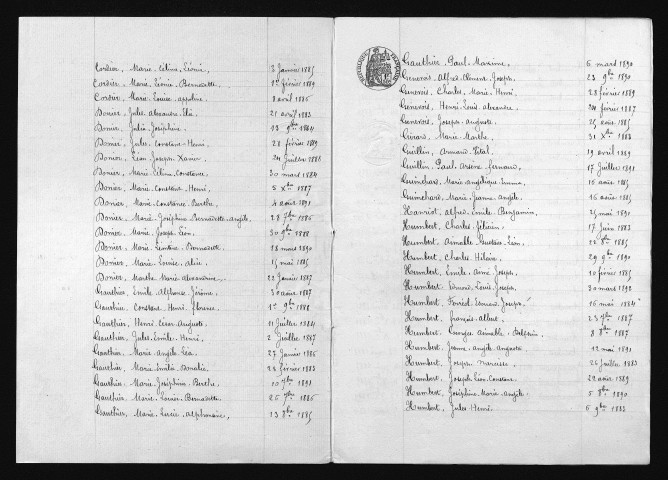 Cordier, Marie Célina Léonie, 2 Janvier 1885
Cordier, Marie Léonie Bernadette, 1er février 1889
Cordier, Marie Louise, 8 avril 1886
Donier, Jules Alexandre Elie, 21 avril 1883
Donier, Julia Joséphine, 13 9bre 1884
Donier, Jules Constant Henri, 28 février 1889
Donier, Léon Joseph Xavier, 24 Juillet 1886
Donier, Marie Célina Constance, 30 mars 1884
Donier, Marie Constance Henri, 5 Xbre 1887
Donier, Marie Constance Berthe, 4 août 1891
Donier, Marie Joséphine Bernadette Angèle, 28 7bre 1886
Donier, Marie Joseph Léon, 30 9bre 1888
Donier, Marie Léontine Bernadette, 18 mars 1890
Donier, Marie Louise Alice, 15 mai 1885
Donier, Marthe Marie Alexandrine, 22 Janvier 1887
Gauthier, Emile Alphonse Jérôme, 30 août 1882
Gauthier, Constant Henri florence, 1er 9bre 1888
Gauthier, Henri César Auguste, 11 Juillet 1884
Gauthier, Jules Emile Henri, 2 Juillet 1887
Gauthier, Marie Angèle Léa, 27 Janvier 1886
Gauthier, Marie Emélie Donalie, 28 février 1883
Gauthier, Marie Joséphine Berthe, 10 7bre 1891
Gauthier, Marie Louise Bernadette, 25 7bre 1886
Gauthier, Marie Lucie Alphonsine, 13 8bre 1885
Gauthier, Paul Maxime, 6 mars 1890
Genevois, Alfred Clément Joseph, 23 9bre 1890
Genevois, Charles Marie Henri, 28 février 1889
Genevois, Henri Louis Alexandre, 24 février 1887
Genevois, Joseph Auguste, 25 août 1885
Girard, Marie Marthe, 31 Xbre 1883
Guillin, Armand Vital, 19 avril 1889
Guillin, Paul Arsène fernand, 17 Juillet 1891
Guinchard, Marie Angélique Emma, 15 août 1885
Guinchard, Marie Jeanne Angèle, 16 août 1885
Henriot, Alfred Emile Benjamin, 25 mai 1890
Humbert, Charles félicien, 17 Juin 1883
Humbert, Aimable Gustave Léon, 22 8bre 1885
Humbert, Charles Hilaire, 29 9bre 1890
Humbert, Emile Aimé Joseph, 10 février 1885
Humbert, fernand Louis Joseph, 30 mars 1892
Humbert, Joseph, 16 mai 1884
Humbert, françois Albert, 23 7bre 1887
Humbert, Georges Aimable Delphin, 8 8bre 1887
Humbert, Jeanne Angèle Augusta, 12 mai 1891
Humbert, Joseph Narcisse, 26 Juillet 1883
Humbert, Joseph Léon Constant, 22 août 1889
Humbert, Joséphine Marie Angèle, 5 8bre 1890
Humbert, Jules Henri, 6 9bre 1883